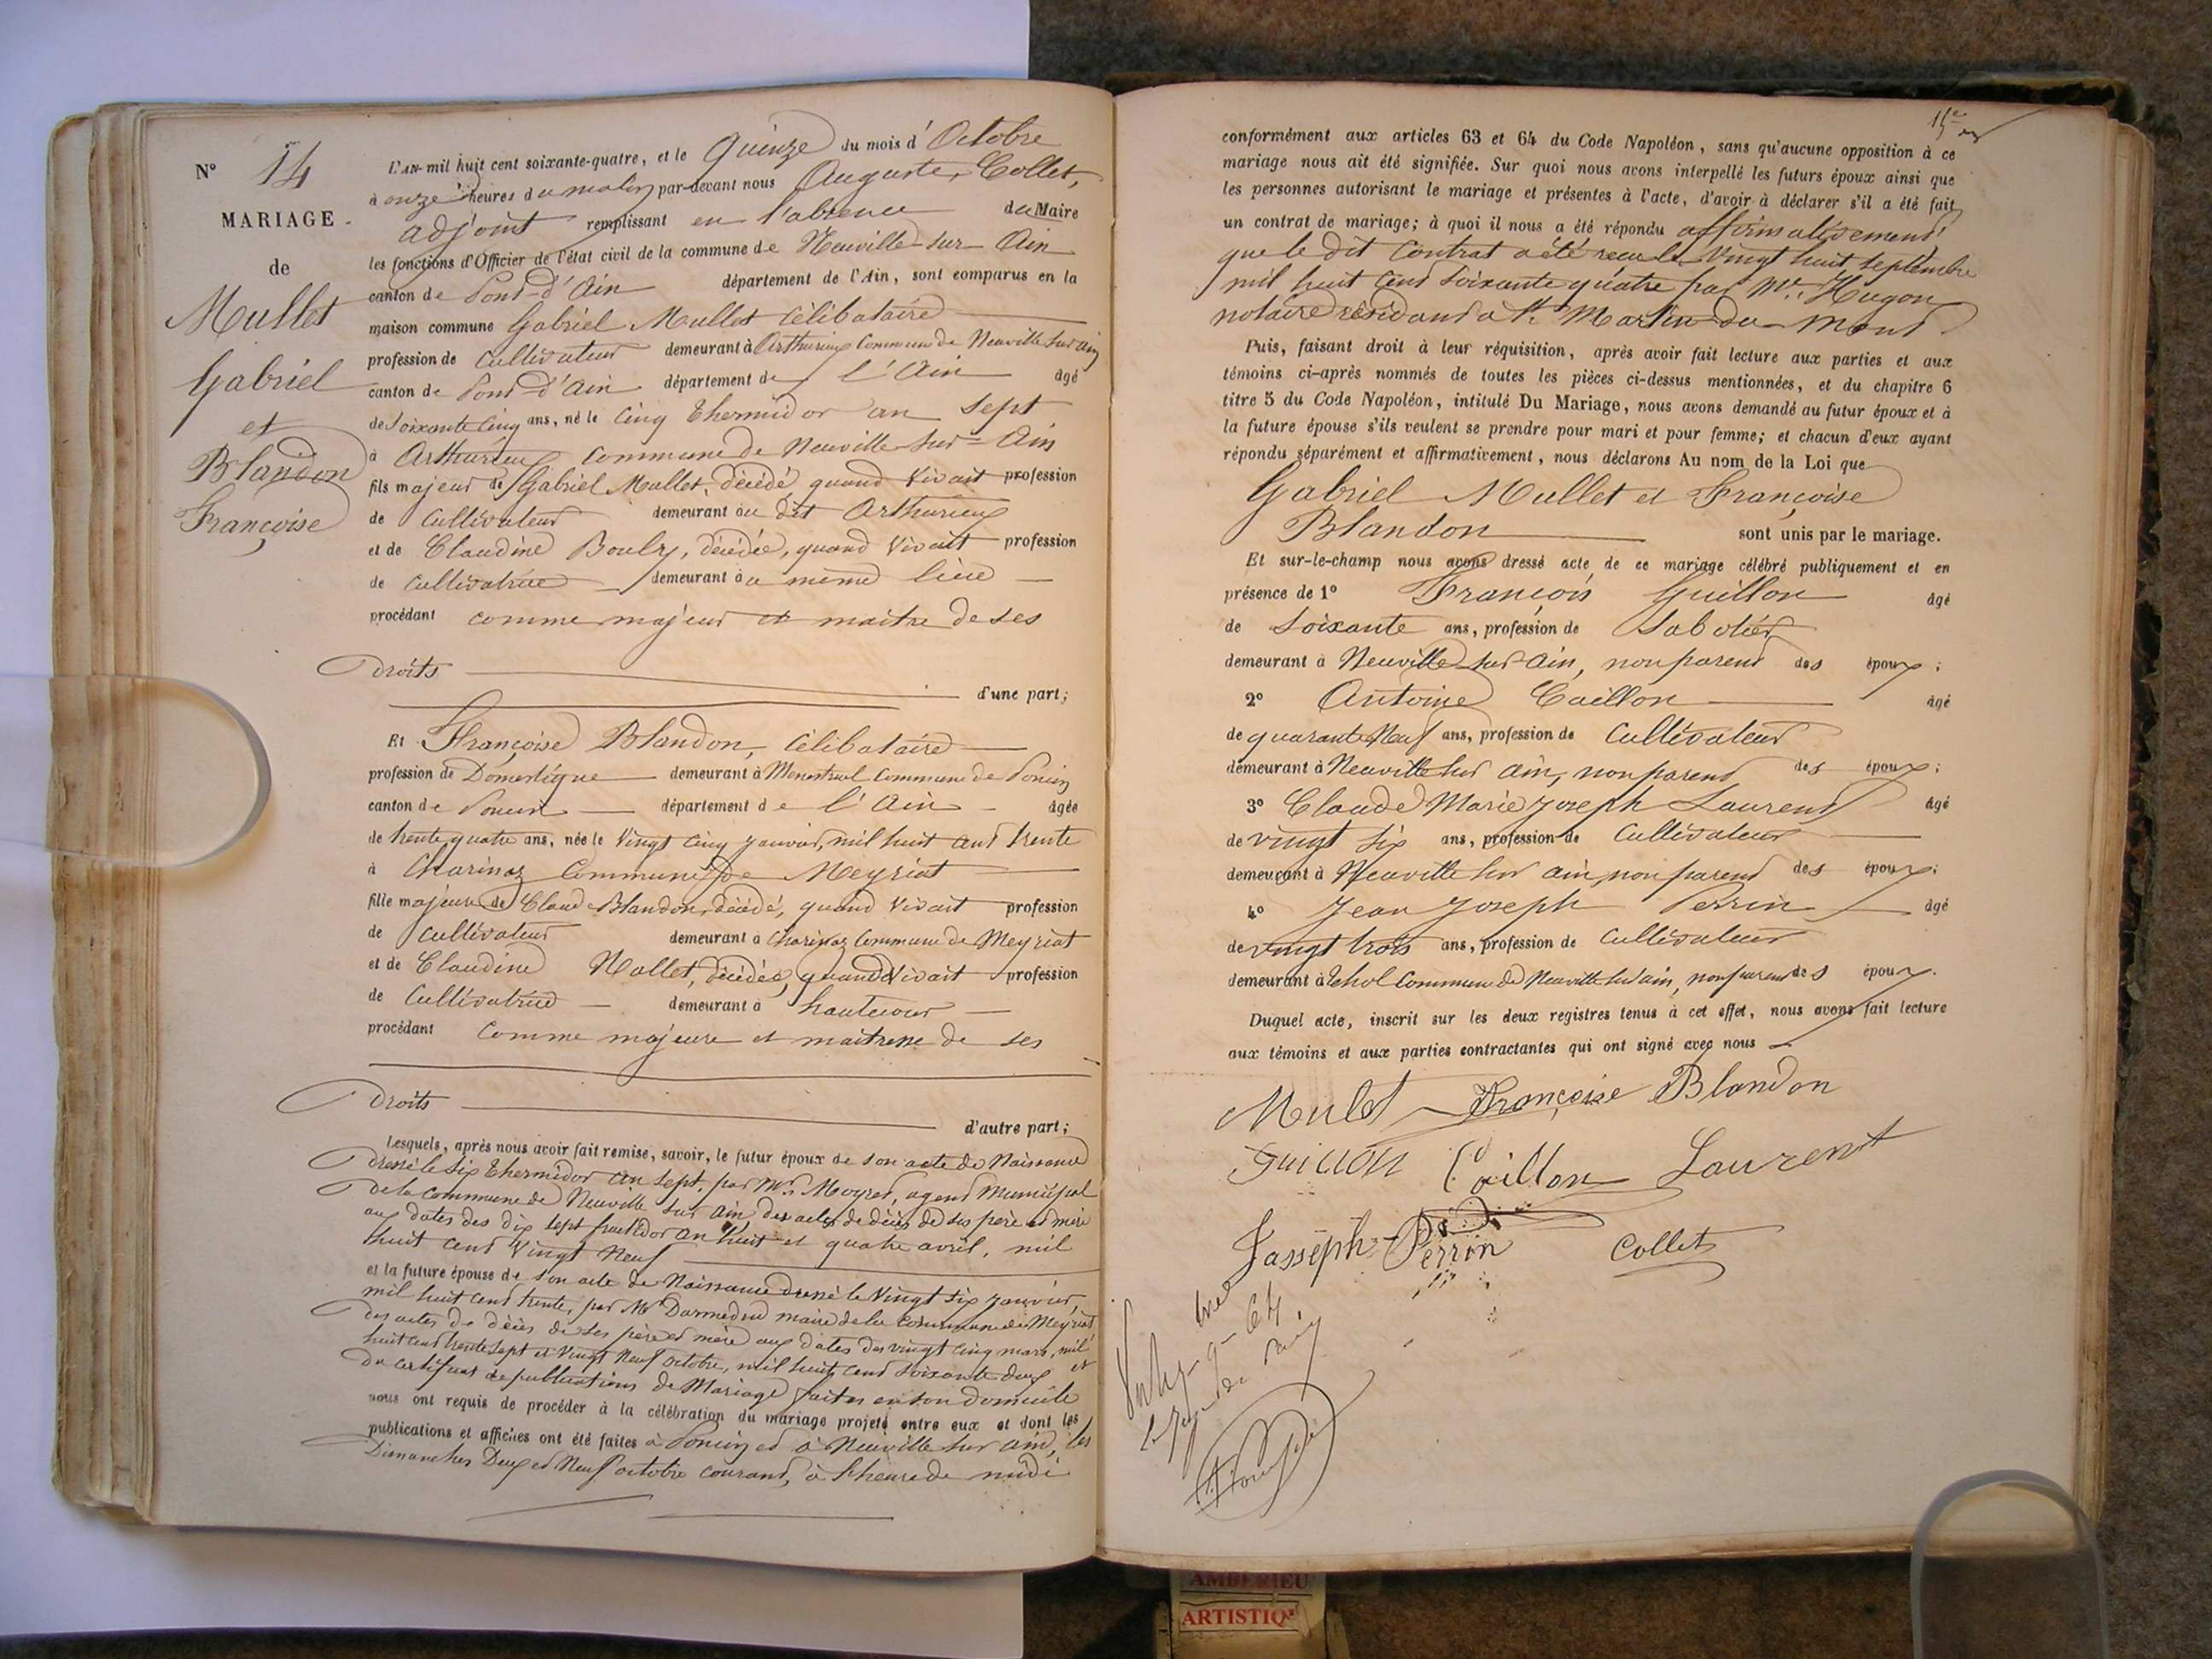 N° 14
MARIAGE
de
Mullet
Gabriel
et
Blandon
Françoise
L'AN mil huit cent soixante-quatre, et le quinze du mois d'Octobre
à onze heures du matin par-devant nous Auguste Collet,
adjoint remplissant en l'absence du Maire
les fonctions d'Officier de l'état civil de la commune de Neuville sur Ain
canton de Pont-d'Ain département de l'Ain, sont comparus en la
maison commune Gabriel Mullet célibataire
profession de cultivateur demeurant à Arthurieux Commune de Neuville sur ain
canton de Pont-d'Ain département de l'Ain âgé
de soixante cinq ans, né le cinq thermidor an sept
à Arthurieux commune de Neuville sur Ain
fils majeur de Gabriel Mullet, décédé, quand vivait profession
de cultivateur demeurant au dit Arthurieux
et de Claudine Bouly, décédée, quand vivait profession
de cultivatrice demeurant au même lieu
procédant comme majeur et maître de ses
droits
d'une part;
Et Françoise Blandon, célibataire
profession de Domestique demeurant à Menestruel Commune de Poncin
canton de Poncin département de l'Ain âgée
de trente quatre ans, née le vingt cinq janvier, mil huit cent trente
à Charinaz Commune de Meyriat
fille majeure de Claude Blandon, décédé, quand vivait profession
de cultivateur demeurant à Charinaz Commune de Meyriat
et de Claudine Nallet, décédée, quand vivait profession
de Cultivatrice demeurant à hautecour
procédant comme majeure et maitresse de ses
droits
d'autre part;
Lesquels, après nous avoir fait remise, savoir, le futur époux de son acte de Naissance
dressé le six thermidor an sept, par Mr. Moyret, agent municipal
de la commune de Neuville sur ain, des actes de décès de ses père et mère
aux dates des dix sept fructidor an huit et quatre avril, mil
huit cent vingt neuf
et la future épouse de son acte de Naissance dressé le vingt six janvier,
mil huit cent trente, par Mr Darmedru maire de la commune de Meyriat
des actes de décès de ses père et mère aux dates des vingt cinq mars, mil
huit cent trente sept et vingt neuf octobre, mil huit cent soixante deux et
du certificat de publications de Mariage faites en son domicile
nous ont requis de procéder à la célébration du mariage projeté entre eux et dont les
publications et affiches ont été faites à Poncin et à Neuville sur ain, les
Dimanches Deux et Neuf octobre courant, à l'heure de midi
15e
conformément aux articles 63 et 64 du Code Napoléon, sans qu'aucune opposition à ce
mariage nous ait été signifiée. Sur quoi nous avons interpellé les futurs époux ainsi que
les personnes autorisant le mariage et présentes à l'acte, d'avoir à déclarer s'il a été fait
un contrat de mariage; à quoi il nous a été répondu affirmativement
que le dit contrat a été reçu le vingt huit septembre
mil huit cent soixante quatre par Me. Hugon
notaire résidant à St. Martin-du-Mont.
Puis, faisant droit à leur réquisition, après avoir fait lecture aux parties et aux
témoins ci-après nommés de toutes les pièces ci-dessus mentionnées, et du chapitre 6
titre 5 du Code Napoléon, intitulé Du Mariage, nous avons demandé au futur époux et à
la future épouse s'ils veulent se prendre pour mari et pour femme; et chacun d'eux ayant
répondu séparément et affirmativement, nous déclarons Au nom de la Loi que
Gabriel Mullet et Françoise
Blandon sont unis par le mariage.
Et sur-le-champ nous avons dressé acte de ce mariage célébré publiquement et en
présence de 1° François Guillon âgé
de soixante ans, profession de Sabotier
demeurant à Neuville sur Ain, non parent des époux;
2° Antoine Caillon âgé
de quarante Neuf ans, profession de Cultivateur
demeurant à Neuville sur ain, non parent des époux;
3° Claude Marie Joseph Laurent âgé
de vingt six ans, profession de Cultivateur
demeurant à Neuville sur ain, non parent des époux;
4° Jean Joseph Perrin âgé
de vingt trois ans, profession de Cultivateur
demeurant à Commune de Neuville sur ain, non parent des époux.
Duquel acte, inscrit sur les deux registres tenus à cet effet, nous avons fait lecture
aux témoins et aux parties contractantes qui ont signé avec nous
Mulet Françoise Blandon
Guillon Caillon Laurent
Jasseph Perrin Collet
AMBERIEU
ARTISTIQ